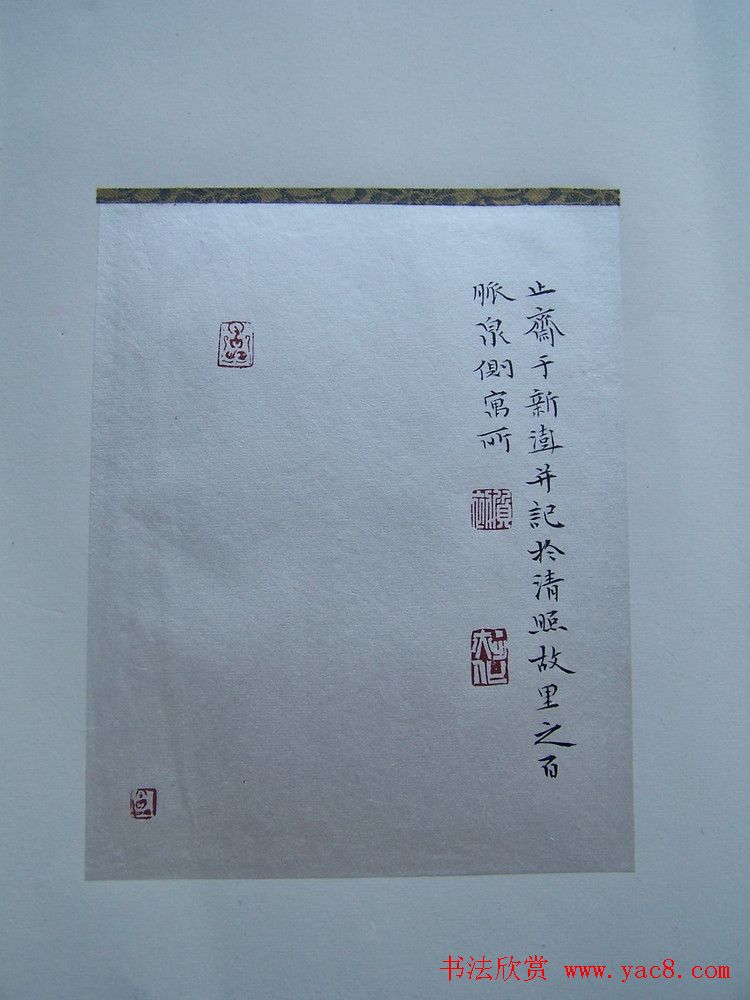 止齋于新澍并記於清照故里之百
脈泉側寓所
书法欣赏 www.yac8.com